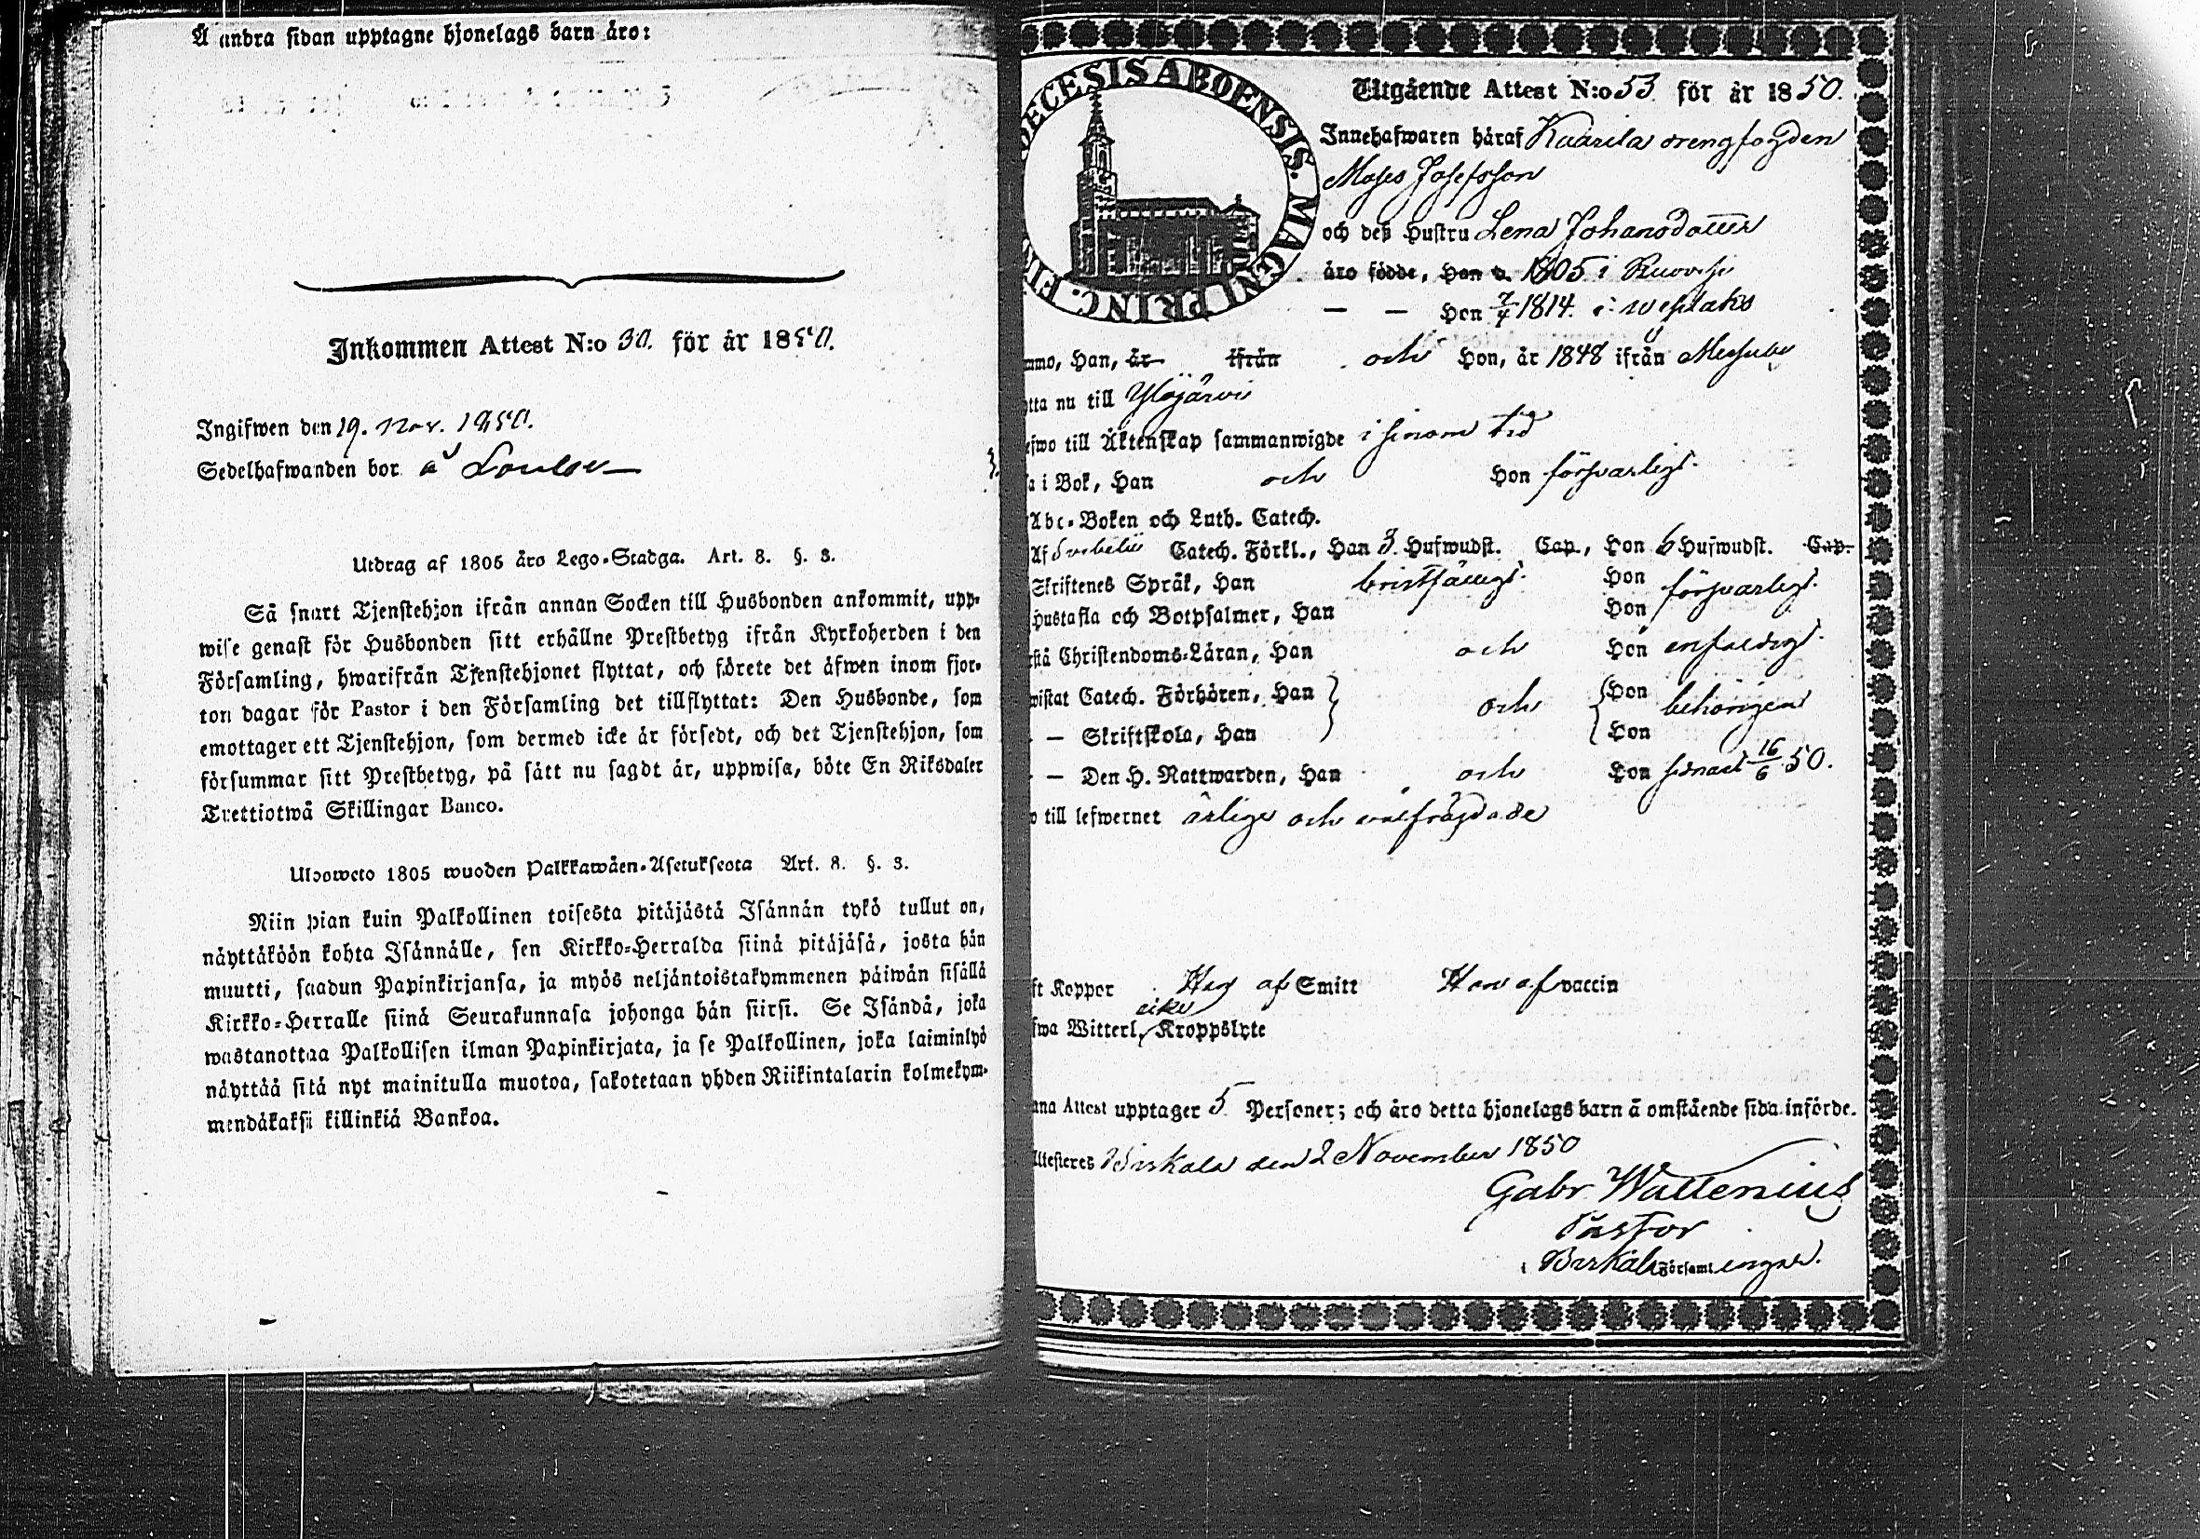 Å andra sidan upptagne hjonelags barn äro:
Inkommen Attest N:o 30. för år 1850.
Ingifwen den 19. Nov. 1850.
Sedelhafwanden bor å
Utdrag af 1805 års Lego-Stadga. Art. 8. §. 3.
Så snart Tjenstehjon ifrån annan Socken till Husbonden ankommit, upp-
wise genast för Husbonden sitt erhållne Prestbetyg ifrån Kyrkoherden i den
Församling, hwarifrån Tjenstehjonet flyttat, och förete det äfwen inom fjor-
ton dagar för Pastor i den Församling det tillflyttat: Den Husbonde, som
emottager ett Tjenstehjon, som dermed icke är försedt, och det Tjenstehjon, som
försummar sitt Prestbetyg, på sätt nu sagdt är, uppwisa, böte En Riksdaler
Trettiotwå Skillingar Banco.
Ulosweto 1805 wuoden Palkkawäen-Asetuksesta Art. 8. §. 3.
Niin pian kuin Palkollinen toisesta pitäjästä Isännän tykö tullut on,
näyttäköön kohta Isännälle, sen Kirkko-Herralda siinä pitäjäsä, josta hän
muutti, saadun Papinkirjansa, ja myös neljäntoistakymmenen päiwän sisällä
Kirkko-Herralle siinä Seurakunnasa johonga hän siirsi. Se Isändä, joka
wastanottaa Palkollisen ilman Papinkirjata, ja se Palkollinen, joka laiminlyö
näyttää sitä nyt mainitulla muotoa, sakotetaan yhden Riikintalarin kolmekym-
mendäkaksi killinkiä Bankoa.
DECESIS ABOENSIS. MAGNI PRINC. FIN
Utgående Attest N:o 53. för år 1850.
Innehafwaren häraf Kaarila drengfogden
Moses Josefsson
och deß Hustru Lena Johansdotter
äro födde, Han d. 1805 i Ruovesi
— — Hon 7/7 1814. i Wesilaks
mmo, Han, år ifrån och Hon, år 1848 ifrån Messuby
tta nu till Ylöjärvi
efwo till Äktenskap sammanwigde i sinom tid
a i Bok, Han och Hon försvarligt.
Abc-Boken och Luth. Catech.
Af Svebelii Catech. Förkl., Han 3. Hufwudst. Cap., Hon 6 Hufwudst. Cap.
Skriftenes Språk, Han bristfälligt. Hon försvarligt.
Hustafla och Botpsalmer, Han Hon
stå Christendoms-Läran, Han och Hon enfaldigt.
wistat Catech. Förhören, Han och Hon behörigen
— Skriftskola, Han Hon
— Den H. Nattwarden, Han och Hon sednast 16/6 50.
o till lefwernet ärlige och välfrägdade
ft Koppor Han af Smitt Hon af vaccin
icke
fwa Witterl. Kroppslyte
nna Attest upptager 5 Personer; och äro detta hjonelags barn å omstående sida införde.
Attesteres Birkala den 2 November 1850
Gabr. Wallenius
Pastor
i Birkala Församlingar.